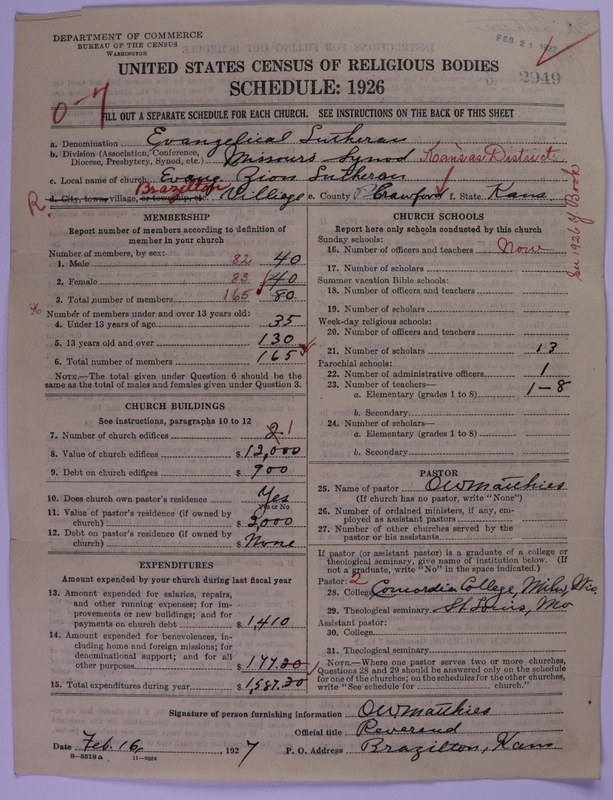 DEPARTMENT OF COMMERCE
BUREAU OF THE CENSUS
WASHINGTON
FEB 21 1927
2949
UNITED STATES CENSUS OF RELIGIOUS BODIES
SCHEDULE: 1926
0-7
FILL OUT A SEPARATE SCHEDULE FOR EACH CHURCH. SEE INSTRUCTIONS ON THE BACK OF THIS SHEET
a. Denomination Evangelical Lutheran
b. Division (Association, Conference, Diocese, Presbytery, Synod, etc.) Missouri Synod Kansas District
c. Local name of church Evang. Zion Lutheran
R. d. City, town, village, or township, etc. Brazilton Village e. County Crawford f. State Kans
See 1926 Y Book
MEMBERSHIP
Report number of members according to definition of
member in your church
Number of members, by sex:
1. Male 82 40
2. Female 83 40
3. Total number of members 165 80
Number of members under and over 13 years old:
4. Under 13 years of age 35
5. 13 years old and over 130
6. Total number of members 165
NOTE.—The total given under Question 6 should be the
same as the total of males and females given under Question 3.
CHURCH BUILDINGS
See instructions, paragraphs 10 to 12
7. Number of church edifices 2 1
8. Value of church edifices $ 12,000
9. Debt on church edifices $ 900
10. Does church own pastor's residence Yes
Yes or No
11. Value of pastor's residence (if owned by
church) $ 2,000
12. Debt on pastor's residence (if owned by
church) $ None
EXPENDITURES
Amount expended by your church during last fiscal year
13. Amount expended for salaries, repairs,
and other running expense; for im-
provements or new buildings; and for
payments on church debt $ 1,410
14. Amount expended for benevolences, in-
cluding home and foreign missions; for
denominational support; and for all
other purposes $ 177.30
15. Total expenditures during year $ 1587.30
CHURCH SCHOOLS
Report here only schools conducted by this church
Sunday schools:
16. Number of officers and teachers None
17. Number of scholars
Summer vacation Bible schools:
18. Number of officers and teachers
19. Number of scholars
Week-day religious schools:
20. Number of officers and teachers
21. Number of scholars 13
Parochial schools:
22. Number of administrative officers 1
23. Number of teachers—
a. Elementary (grades 1 to 8) 1-8
b. Secondary
24. Number of scholars—
a. Elementary (grades 1 to 8)
b. Secondary
PASTOR
25. Name of pastor OW Matthies
(If church has no pastor, write "None")
26. Number of ordained ministers, if any, em-
ployed as assistant pastors
27. Number of other churches served by the
pastor or his assistants
If pastor (or assistant pastor) is a graduate of a college or
theological seminary, give name of institution below. (If
not a graduate, write "No" in the space indicated.)
Pastor: 2
28. College Concordia College, Milw, Wis.
29. Theological seminary St. Louis, Mo
Assistant pastor:
30. College
31. Theological seminary
NOTE.—Where one pastor serves two or more churches,
Questions 28 and 29 should be answered only on the schedule
for one of the churches; on the schedules for the other churches,
write "See schedule for church."
Signature of person furnishing information OW Matthies
Official title Reverend
Date Feb. 16, 1927 P. O. Address Brazilton, Kans
8—5518 a 11—9654